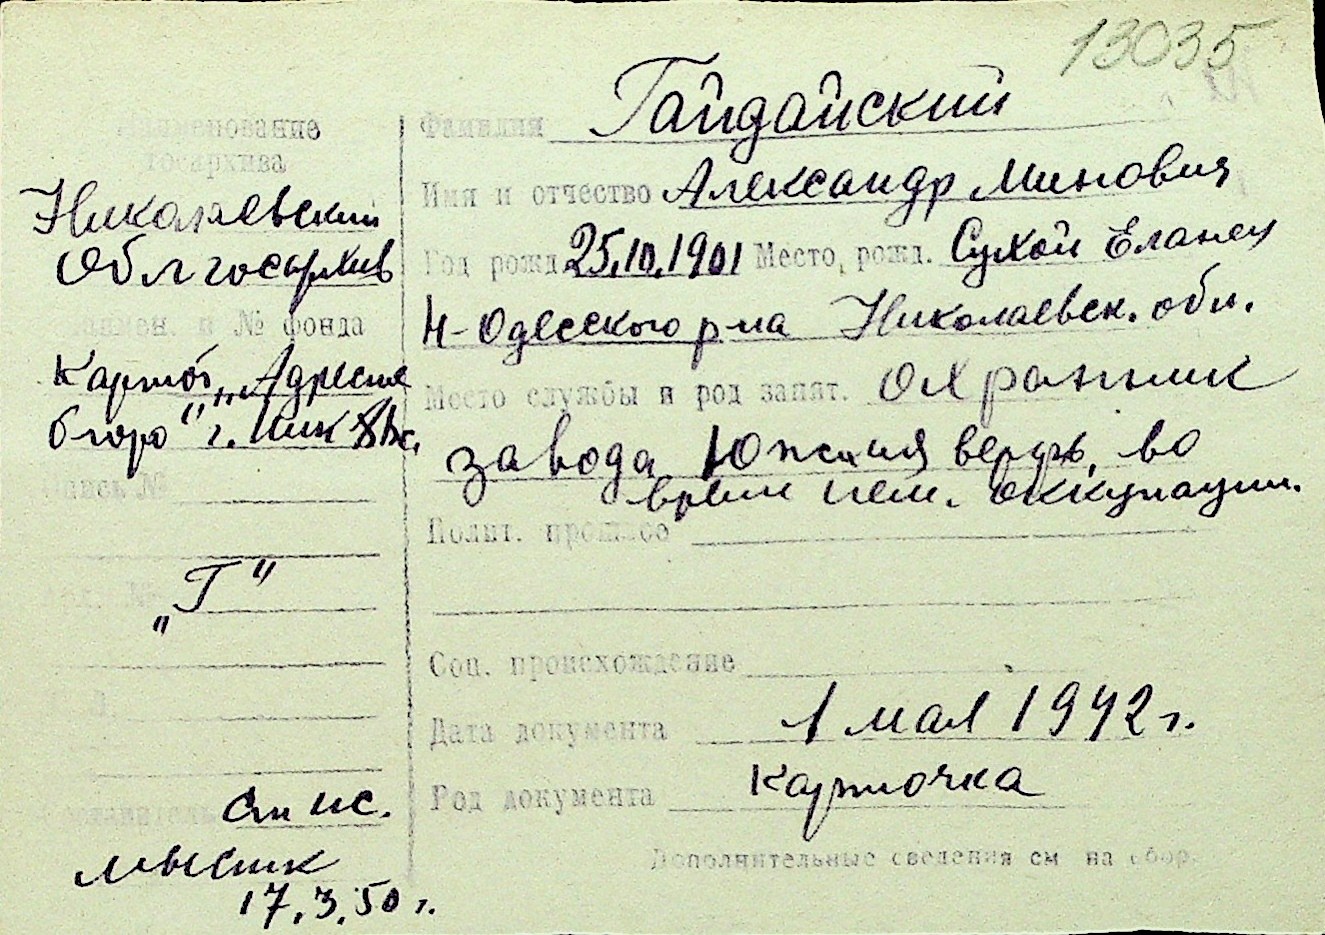 13035
Наименование
госархива
Николаевский
Облгосархив
Наимен. и № фонда
Картот. „Адресне
бюро" г. Ник
Опись №
Арх. №
„Г"
Составитель ст ис.
Мысик
17.3.50 г.
Фамилия Гайдайский
Имя и отчество Александр Минович
Год рожд. 25.10.1901 Место рожд. Сухой Еланец
Н-Одесского р-на Николаевск. обл.
Место службы и род занят. Охранник
завода Южная верфь, во
время нем. оккупации.
Полит. прошлое
Соц. происхождение
Дата документа 1 мая 1942 г.
Род документа Карточка
Дополнительные сведения см на обор.